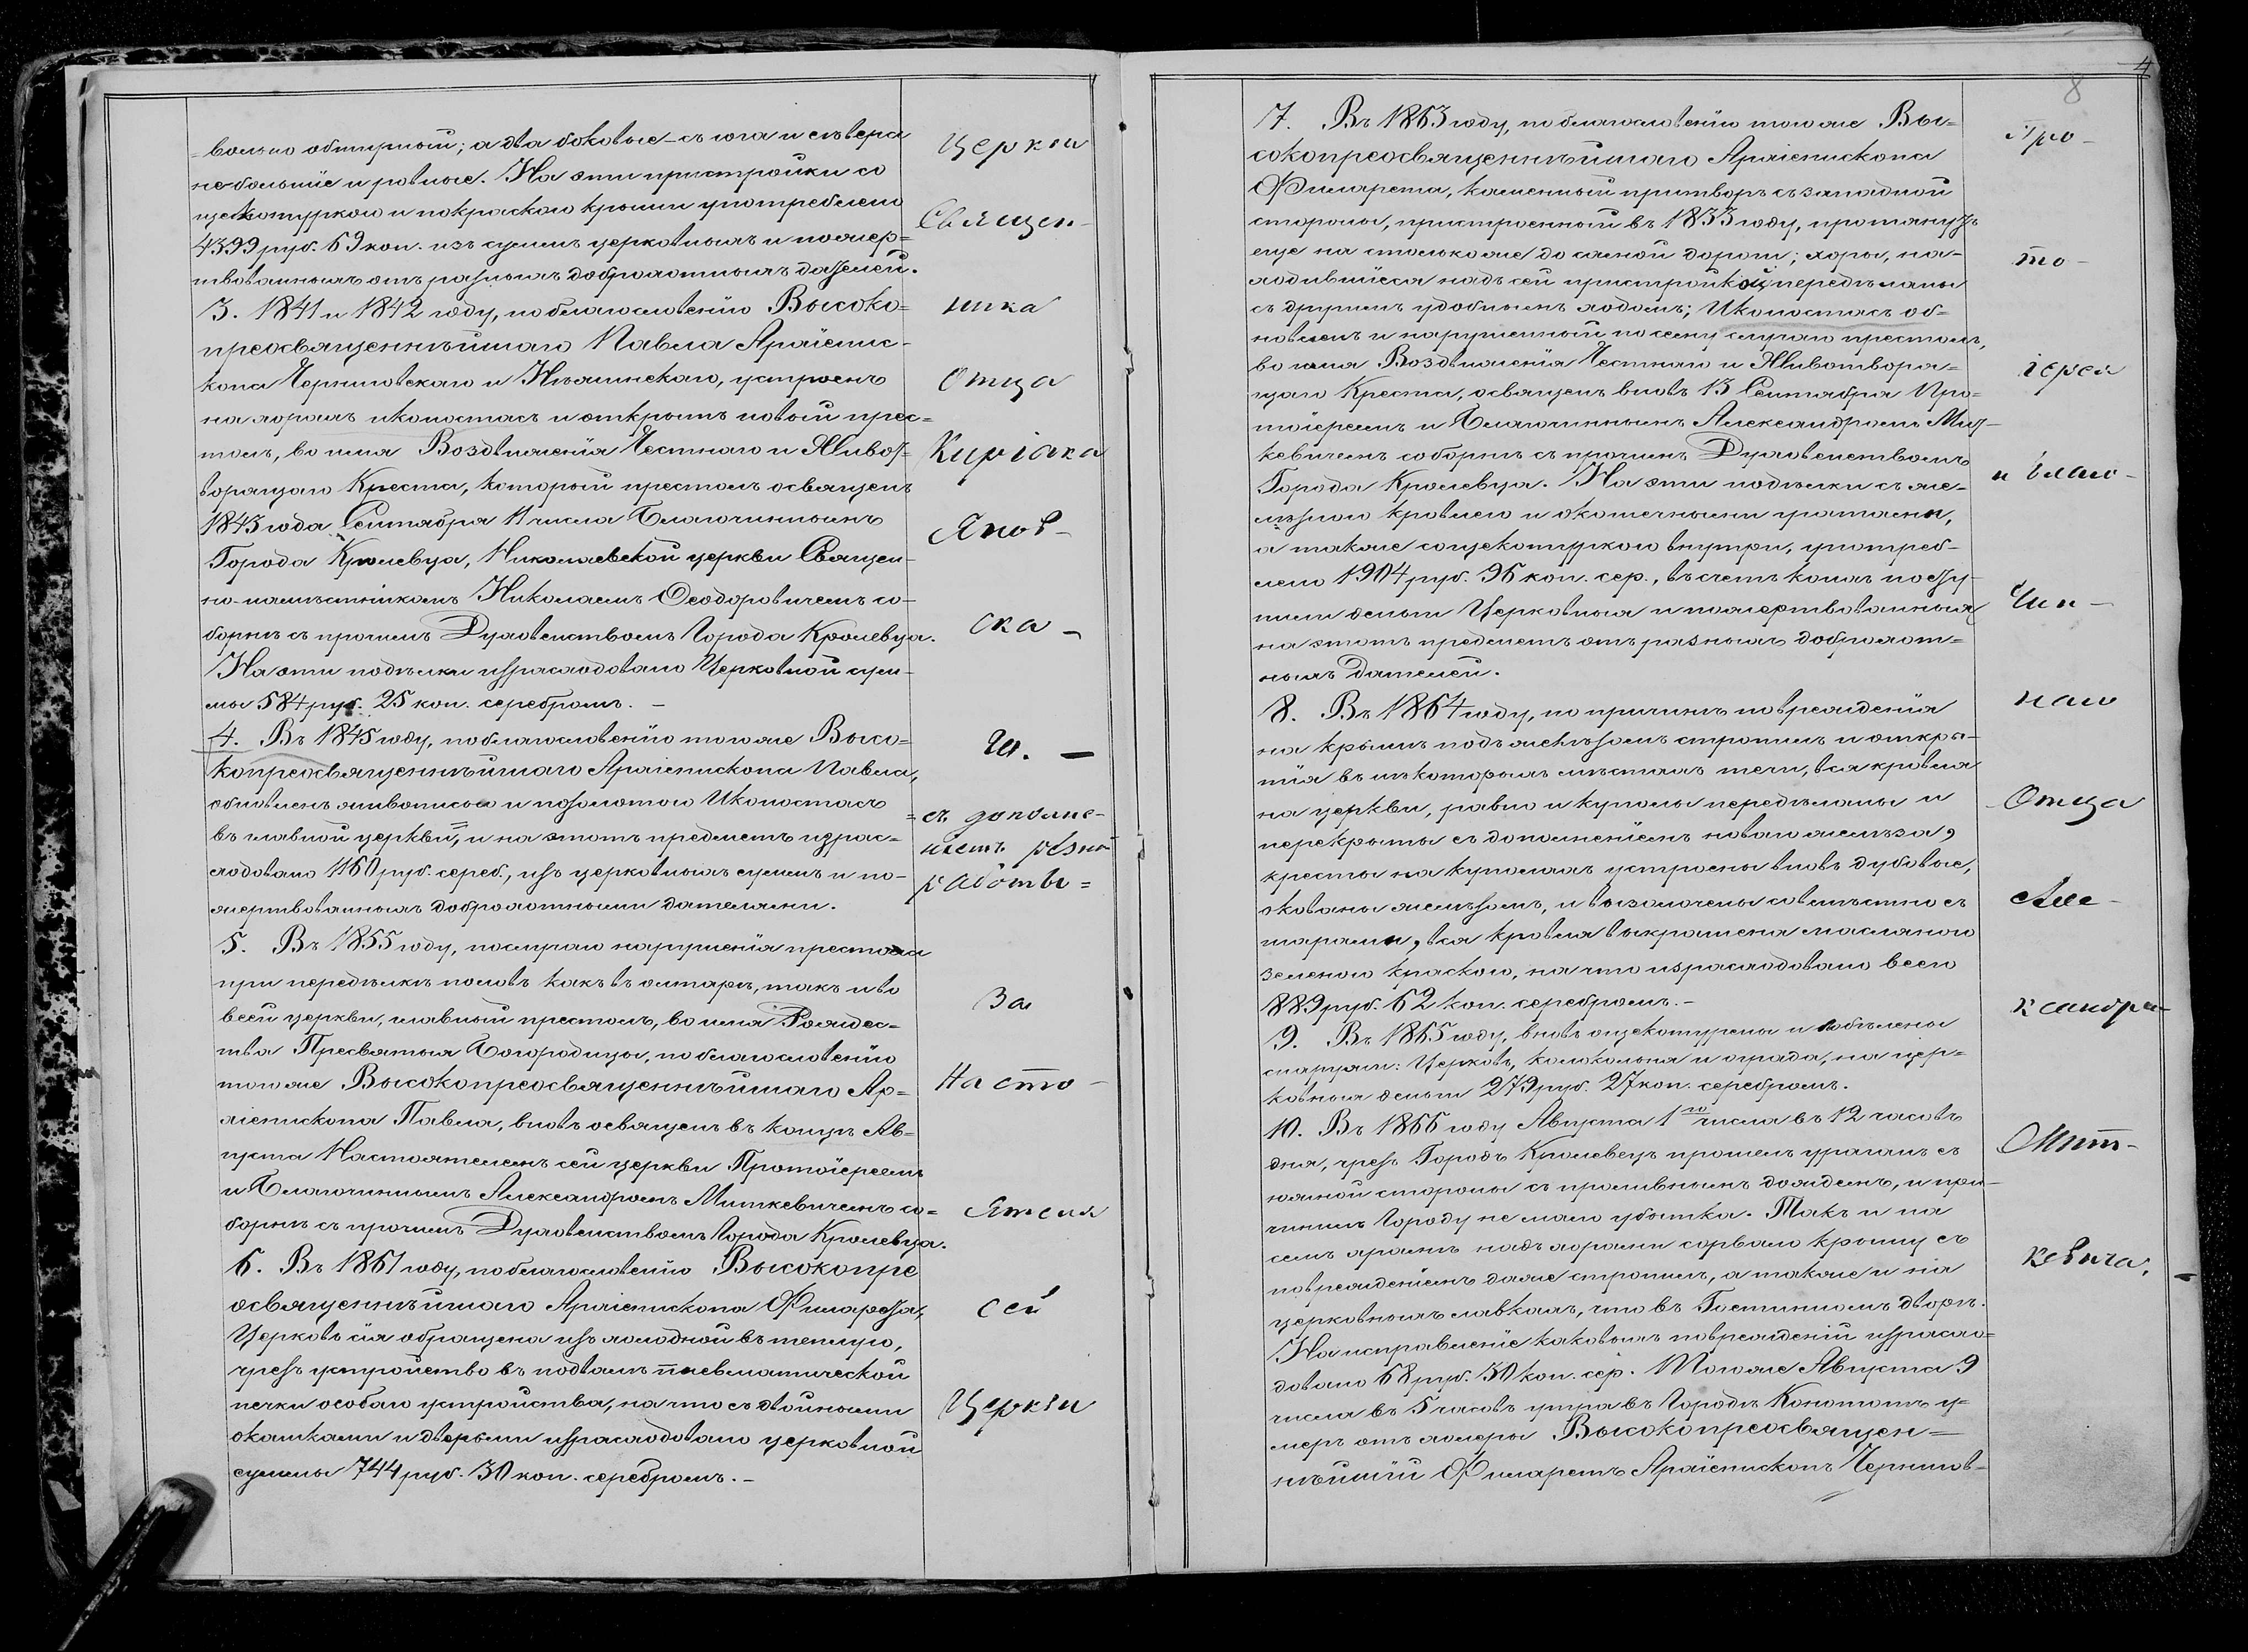 =вольно обширный; а два боковые – съ юга и сѣвера
небольшіе и ровные. На эти пристройки со
щекотуркою и покраскою крыши употреблено
4399 руб. 69 коп. изъ суммъ церковныхъ и пожер=
твованныхъ отъ разныхъ доброхотныхъ дателей.
3. 1841 и 1842 году, по благословенію Высоко=
преосвященнѣйшаго Павла Архіепис-
копа Черниговскаго и Нѣжинскаго, устроенъ
на хорахъ иконостасъ и открытъ новый прес=
толъ, во имя Воздвиженія Честнаго и Живот-
ворящаго Креста, который престолъ освященъ
1843 года Сентября 11 числа Благочиннымъ
Города Кролевца, Николаевской церкви Священ-
но-намѣстникомъ Николаемъ Ѳеодоровичемъ со-
борнѣ съ прочимъ Духовенствомъ Города Кролевца.
На эти подѣлки израсходовано Церковной сум-
мы 584 руб. 25 коп. серебромъ. –
4. Въ 1845 году, по благословенію того же Высо=
копреосвященнѣйшаго Архіепископа Павла,
обновленъ живописью и позолотою Иконостасъ
въ главной церкви=, и на этотъ предметъ израс=
ходовано 1160 руб. сереб., изъ церковныхъ суммъ и по-
жертвованныхъ доброхотными дателями.
5. Въ 1855 году, по случаю нарушенія престола
при передѣлкѣ половъ какъ въ олтарѣ, такъ и во
всей церкви, главный престолъ, во имя Рождес=
тва Пресвятыя Богородицы, по благословенію
того же Высокопреосвященнѣйшаго Ар=
хіепископа Павла, вновь освященъ въ концѣ Ав=
густа Настоятелемъ сей церкви Протоіереемъ
и Благочиннымъ Александромъ Миткевичемъ со=
борнѣ съ прочимъ Духовенствомъ Города Кролевца.
6. Въ 1861 году, по благословенію Высокопре
освященнѣйшаго Архіепископа Филарета,
Церковь сія обращена изъ холодной въ теплую,
чрезъ устройство въ подвалѣ пневматической
печки особаго устройства, на что съ двойными
окошками и дверьми израсходовано церковной
суммы 744 руб. 30 коп. серебромъ. –
Церкви
Священ-
ника
Отца
Киріака
Янов-
ска-
го. –
=съ дополне-
ніемъ рѣзной
работы=
За
Насто-
ятеля
сей
Церкви
4
8
7. Въ 1863 году, по благословенію того же Вы=
сокопреосвященнѣйшаго Архіепископа
Филарета, каменный притворъ съ западной
стороны, пристроенный въ 1833 году, протянутъ
еще на столько же до самой дороги; хоры, на-
ходившіеся надъ сей пристройкой, передѣланы
съ другимъ удобнымъ ходомъ; Иконостасъ об=
новленъ и нарушенный по сему случаю престолъ,
во имя Воздвиженія Честнаго и Животворя=
щаго Креста, освященъ вновь 13 Сентября Про=
тоіереемъ и Благочиннымъ Александромъ Мит-
кевичемъ соборнѣ съ прочимъ Духовенствомъ
Города Кролевца. На эти подѣлки съ же-
лѣзною кровлею и окошечными гратами,
а также со щекотуркою внутри, употреб-
лено 1904 руб. 96 коп. сер., въ счетъ коихъ посту-
пили деньги Церковныя и пожертвованныя
на этотъ предметъ отъ разныхъ доброхот=
ныхъ Дателей.
8. Въ 1864 году, по причинѣ поврежденія
на крышѣ подъ желѣзомъ стропилъ и откры-
тія въ нѣкоторыхъ мѣстахъ течи, вся кровля
на церкви, равно и куполы передѣланы и
перекрыты съ дополненіемъ новаго желѣза,
кресты на куполахъ устроены вновь дубовые,
окованы желѣзомъ, и вызолочены совмѣстно съ
шарами, вся кровля выкрашена масляною
зеленою краскою, на что израсходовано всего
889 руб. 62 коп. серебромъ. –
9. Въ 1865 году, вновь ощекотурены и побѣлены
снаружи: Церковь, колокольня и ограда, на цер=
ковныя деньги 279 руб. 27 коп. серебромъ.
10. Въ 1866 году Августа 1го числа въ 12 часовъ
дня, чрезъ Городъ Кролевецъ прошелъ ураганъ съ
южной стороны съ проливнымъ дождемъ, и при-
чинилъ Городу не мало убытка. Такъ и на
семъ храмѣ надъ хорами сорвало крышу съ
поврежденіемъ даже стропилъ, а также и на
церковныхъ лавкахъ, что въ Гостинномъ дворѣ.
На исправленіе каковыхъ поврежденій израсхо=
довано 68 руб. 30 коп. сер. Того же Августа 9
числа въ 5 часовъ утра въ Городѣ Конотопѣ у=
меръ отъ холеры Высокопреосвящен=
нѣйшій Филаретъ Архіепископъ Чернигов-
Про-
то-
іерея
и Благо-
чин-
наго
Отца
Але-
ксандра
Мит-
кевича.